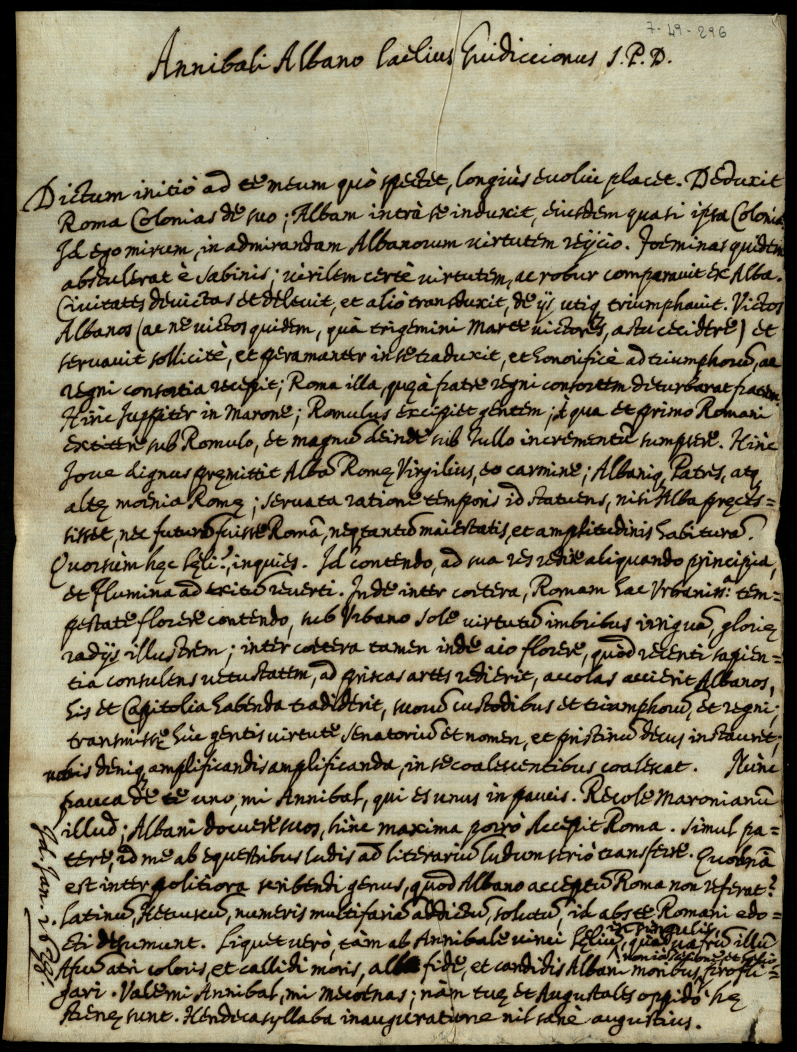 7-49-296
Annibali Albano Laelius Guidiccionus S.P.D.
Dictum initiò ad te meum quò spectet, longiùs euolui placet. Deduxit
Roma Colonias de suo; Albam intrà se induxit, eiusdem quasi ipsa Colonia
Id ego mirum, in admirandam Albanorum uirtutem reijcio. Foeminas quidem
abstulerat è Sabinis; uirilem certè uirtutem, ac robur comparauit ex Alba.
Ciuitates deuictas et deleuit, et aliò transduxit, de ijs utiq; triumphauit. Victos
Albanos (ac ne uictos quidem, quà trigemini Marte uictores, astu cecidere) et
seruauit sollicitè, et peramanter in se traduxit, et honorificè ad triumphorũ, ac
regni consortia recepit; Roma illa, quę à fratre regni consortem deturbarat fratrem
Hinc Juppiter in Marone; Romulus excipiet gentem; à qua et primo Romani
extitere sub Romulo, et magnũ deinde sub Tullo incrementũ sumpsere. Hinc
Joue dignus pręmittit Albã Romę Virgilius, eo carmine; Albaniq; Patres, atq;
altę moenia Romę; seruata ratione temporis id statuens, nisi Alba pręces=
sisset, nec futurã fuisse Romã, neq; tantũ maiestatis, et amplitudinis habiturã.
Quorsùm hęc Lęli?, inquies. Id contendo, ad sua res redire aliquando principia,
et flumina ad exitũ reuerti. Inde inter coetera, Romam hac Vrbaniss.ª tem=
pestate florere contendo, sub Vrbano Sole uirtutũ imbribus irriguã, glorię
radijs illustrem; inter coetera tamen inde aio florere, quòd recenti sapien=
tia consulens uetustatem, ad priscas artes redierit, accolas accierit Albanos,
his et Capitolia habenda tradiderit, suorũ custodibus et triumphorũ, et regni;
transmisse huic gentis uirtute Senatoriũ et nomen, et pristinũ decus instauret;
uobis deniq; amplificandis amplificanda, in se coalescentibus coalescat. Nunc
pauca de te uno, mi Annibal, qui es unus in paucis. Recole Maronianũ
illud; Albani docuere suos, hinc maxima porrò Accepit Roma. Simul pa=
tere, id me ab equestribus ludis ad literariũ ludum seriò transferre. Quodnã
est inter politiora scribendi genus, quod Albano acceptũ Roma non referat?
Latinũ, Hetruscũ, numeris multifariã addictũ, solutũ, id abs te Romani edo=
cti desumunt. Liquet uerò, tàm ab Annibale uinci Lęlius in singulis,
quàm uafrũ illũ
Afrũ atri coloris, et callidi moris, alba fide, et candidis Albani moribus, profli=
gari. Vale mi Annibal, mi Mecoenas; nàm tuę et Augustales oppidò hę
stręnę sunt. Hendecasyllaba inauguratione nil sanè augustius.